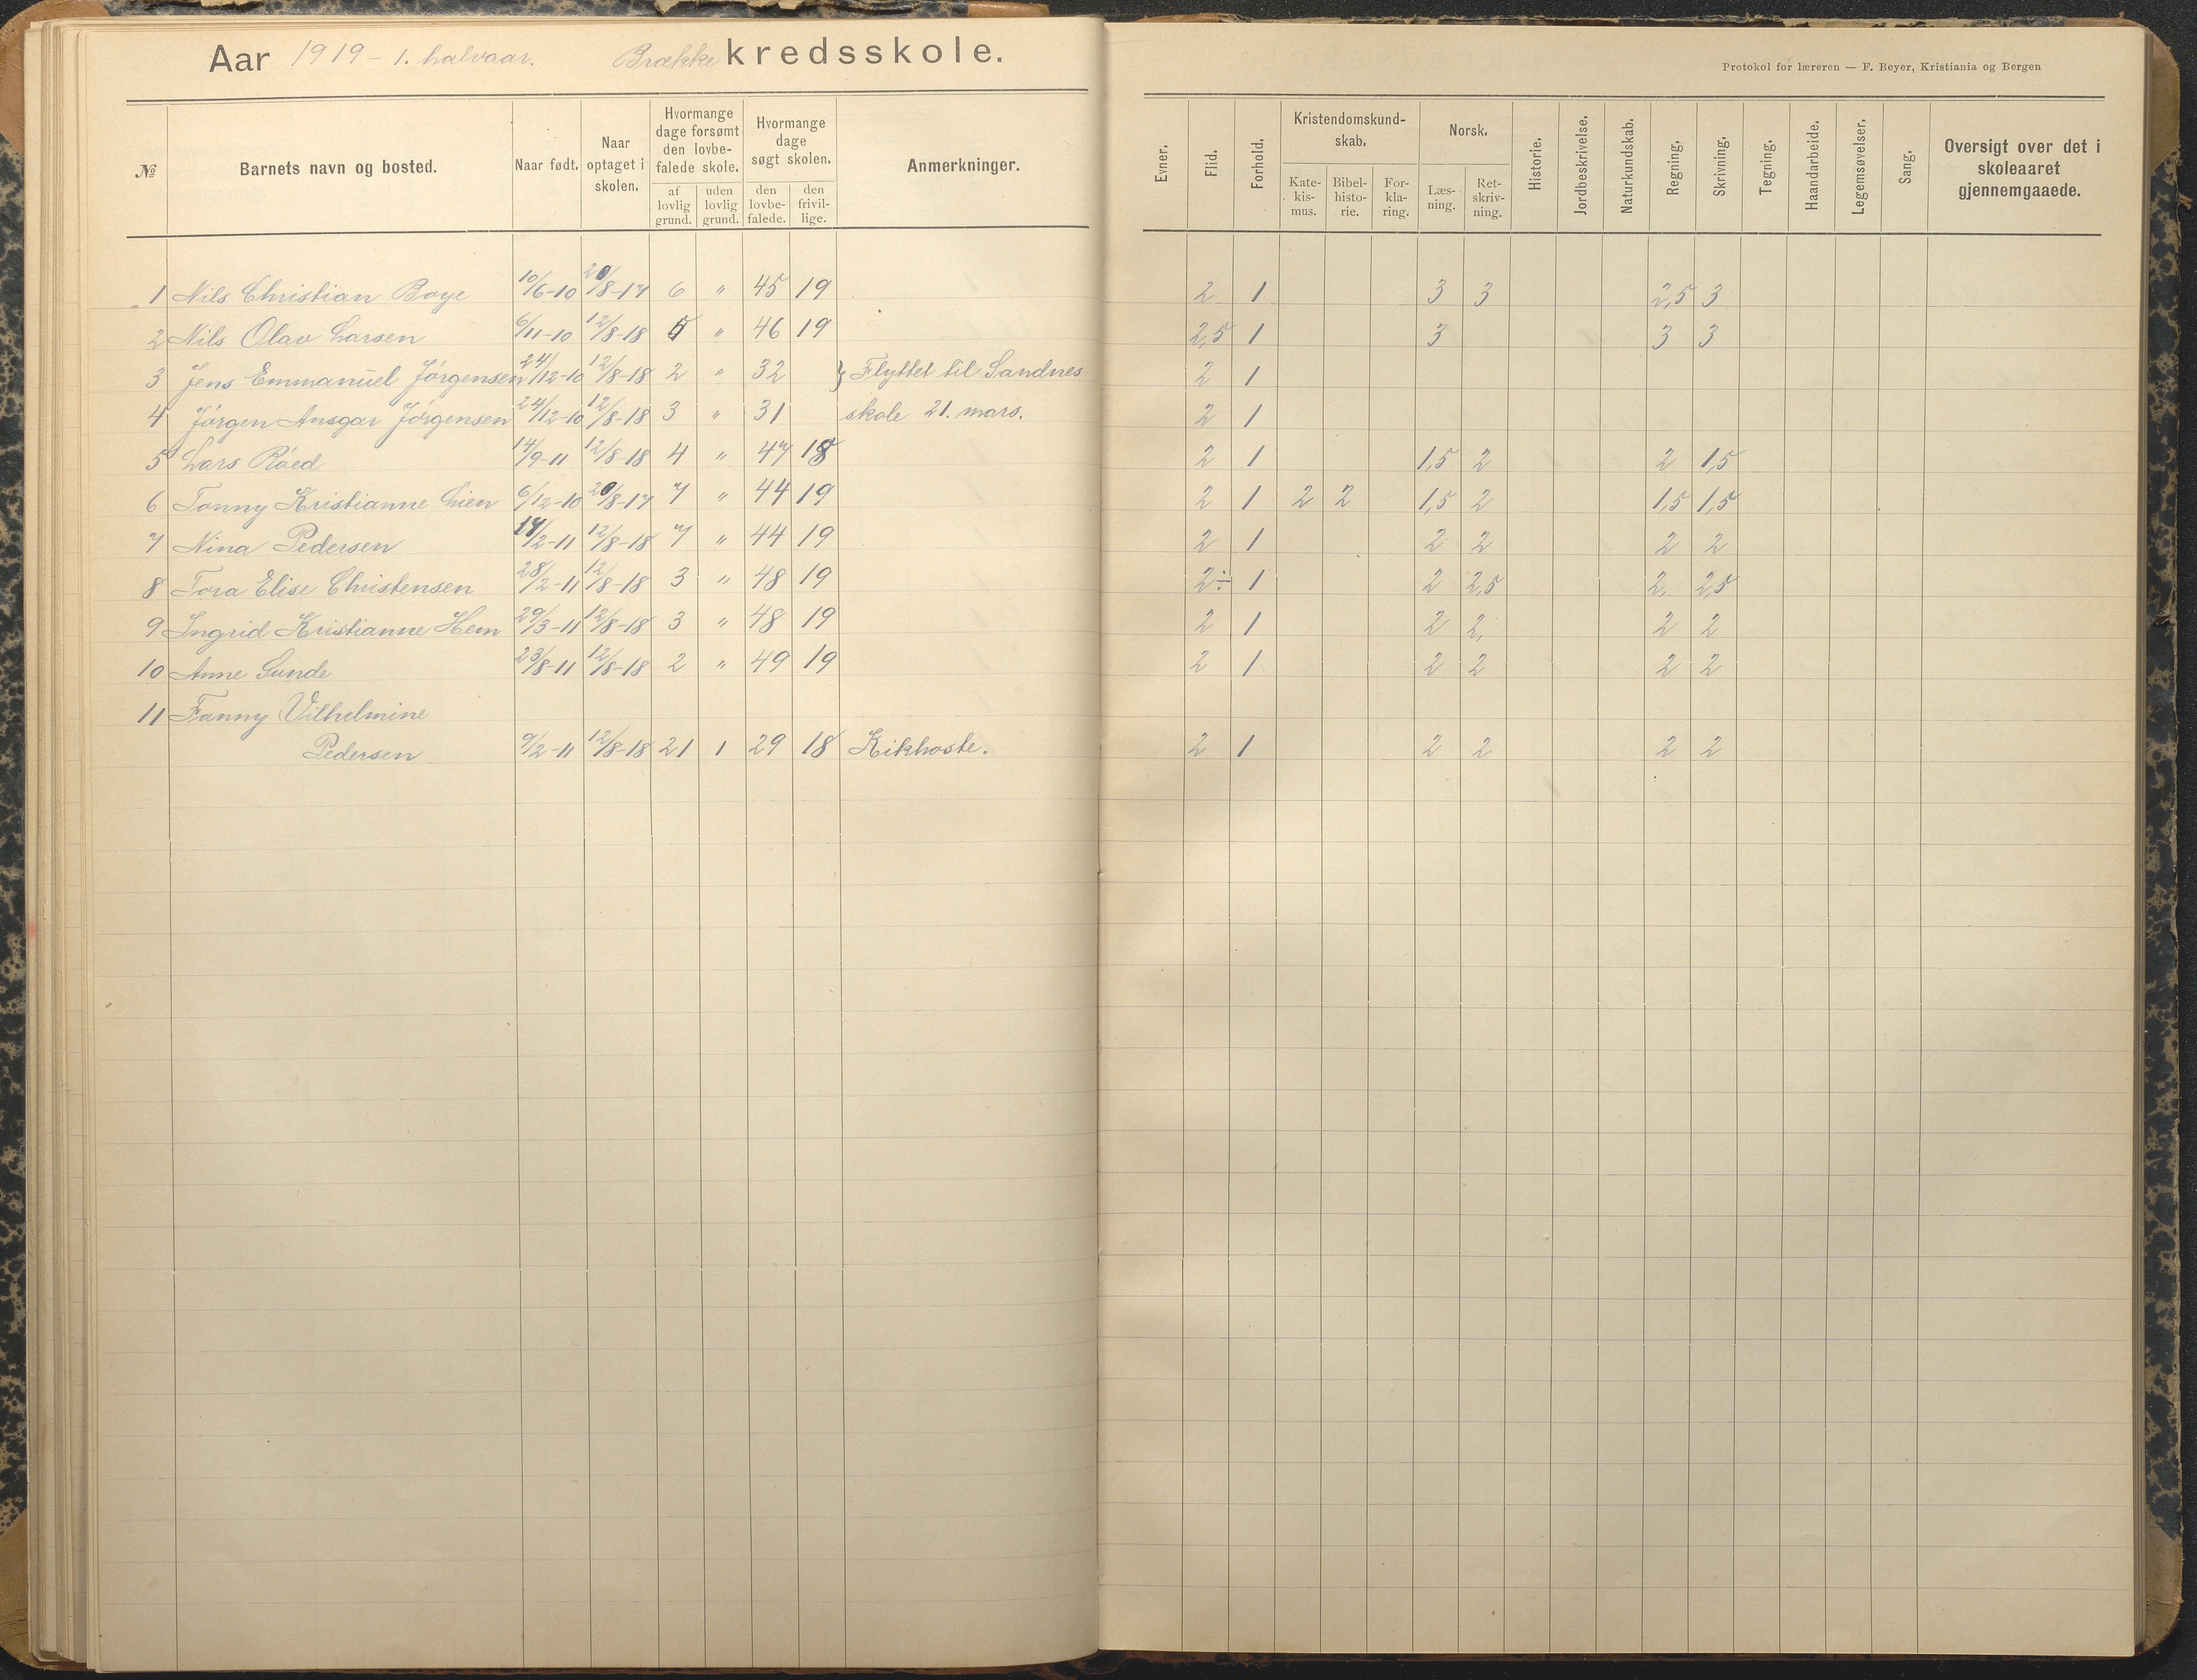 Aar 1919 - 1. halvaar. Brække kredsskole.
Protokol for læreren — F. Beyer, Kristiania og Bergen
№ Barnets navn og bosted. Naar født. Naar optaget i skolen. Hvormange dage forsømt den lovbefalede skole. af lovlig grund. uden lovlig grund. Hvormange dage søgt skolen. den lovbefalede. den frivillige. Anmerkninger.
Evner. Flid. Forhold. Kristendomskundskab. Katekismus. Bibelhistorie. Forklaring. Norsk. Læsning. Retskrivning. Historie. Jordbeskrivelse. Naturkundskab. Regning. Skrivning. Tegning. Haandarbeide. Legemsøvelser. Sang. Oversigt over det i skoleaaret gjennemgaaede.
1 Nils Christian Boye 10/6-10 20/8-17 6 " 45 19 2 1 3 3 2,5 3
2 Nils Olav Larsen 6/11-10 12/8-18 5 " 46 19 2,5 1 3 3 3
3 Jens Emmanuel Jørgensen 24/12-10 12/8-18 2 " 32 } Flyttet til Sandnes 2 1
4 Jørgen Ansgar Jørgensen 24/12-10 12/8-18 3 " 31 skole 21. mars. 2 1
5 Lars Røed 14/9-11 12/8-18 4 " 47 18 2 1 1,5 2 2 1,5
6 Tonny Kristianne Lien 6/12-10 20/8-17 7 " 44 19 2 1 2 2 1,5 2 1,5 1,5
7 Nina Pedersen 14/2-11 12/8-18 7 " 44 19 2 1 2 2 2 2
8 Tora Elise Christensen 28/2-11 12/8-18 3 " 48 19 2÷ 1 2 2,5 2, 2,5
9 Ingrid Kristianne Hem 29/3-11 12/8-18 3 " 48 19 2 1 2 2, 2 2
10 Anne Sunde 23/8-11 12/8-18 2 " 49 19 2 1 2 2 2 2
11 Fanny Vilhelmine
Pedersen 9/2-11 12/8-18 21 1 29 18 Kikhoste. 2 1 2 2 2 2